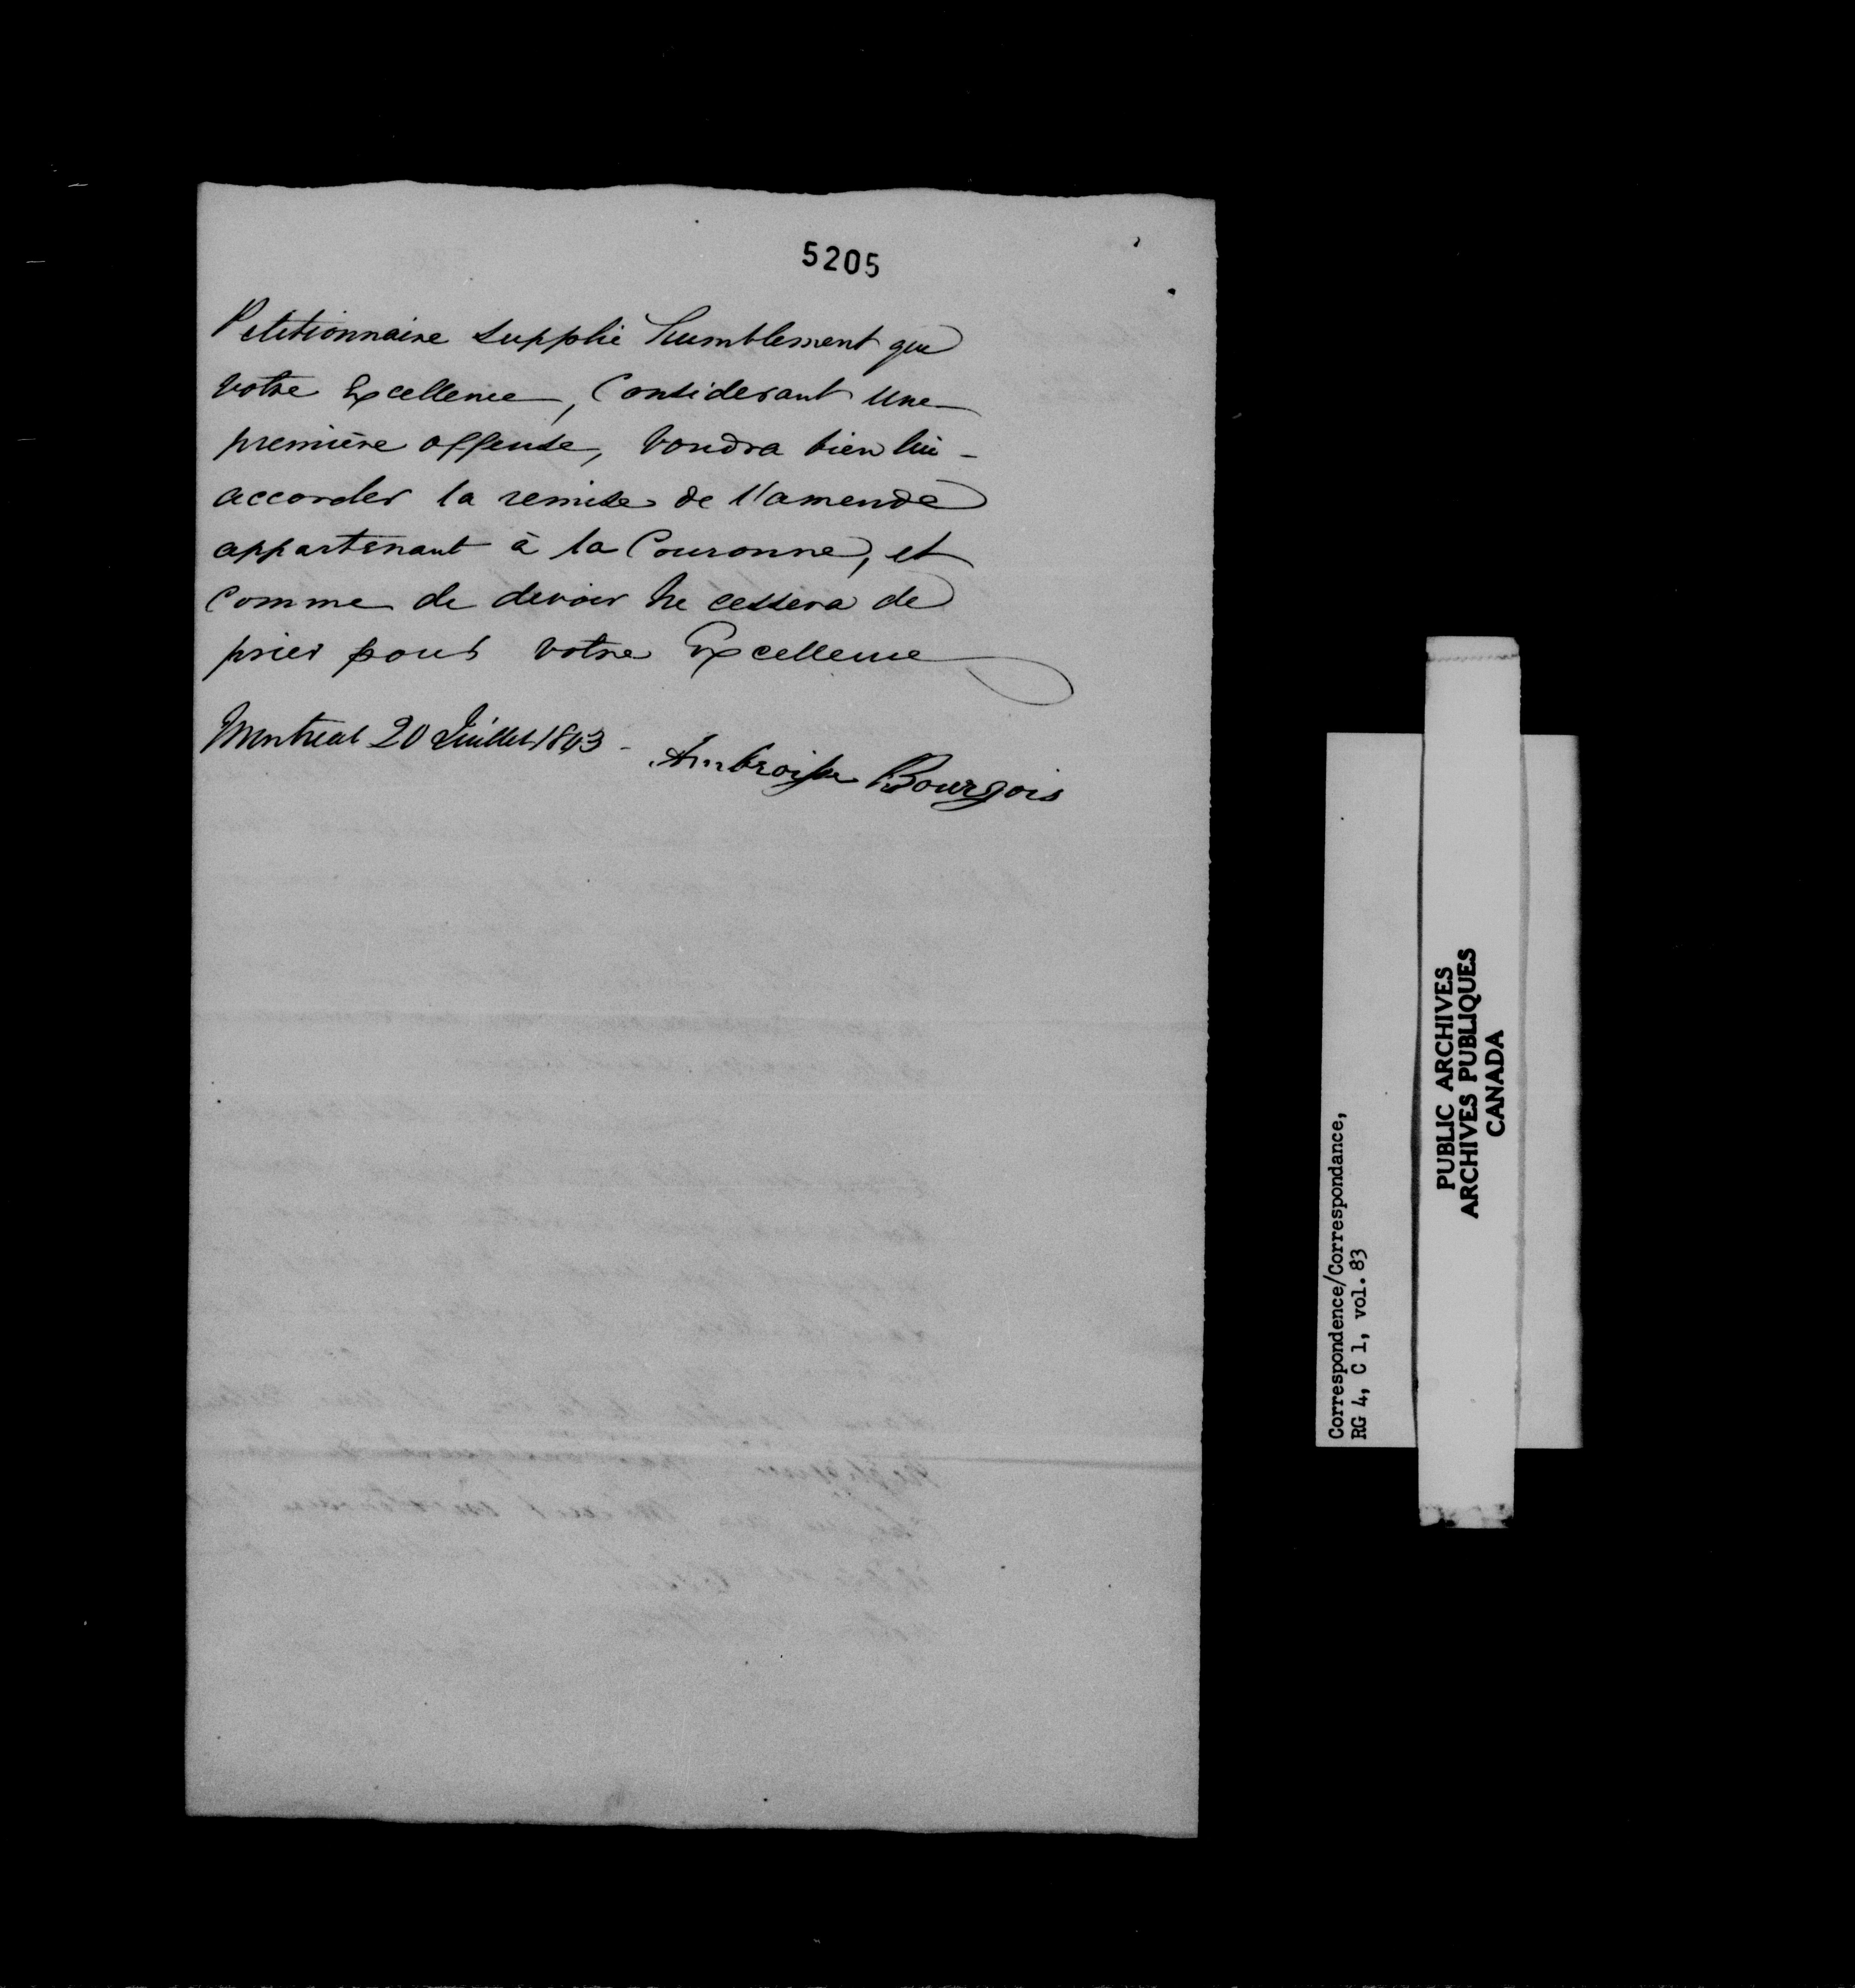 5205
Petitionnaire supplie humblement que
votre Excellence, Considerant une
première offense, voudra bien lui -
accorder la remise de l'amende
appartenant à la Couronne, et
comme de devoir ne cessera de
prier pour votre Excellence
Montreal 20 Juillet 1843 -
Ambroise Bourgois
Correspondence/Correspondance,
RG 4, C 1, vol. 83
PUBLIC ARCHIVES
ARCHIVES PUBLIQUES
CANADA